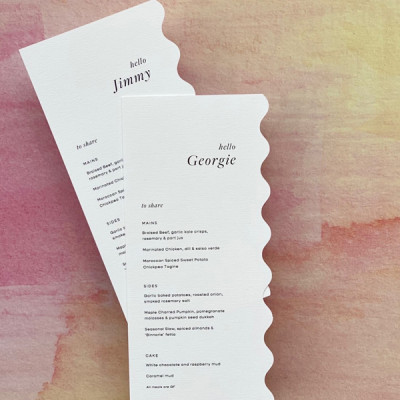 hello
Jimmy
to share
MAINS
Braised Beef, garlic
rosemary & port jus
Marinated Chicken,
Moroccan Spiced
Chickpea Tagine
SIDES
hello
Georgie
to share
MAINS
Braised Beef, garlic kale crisps,
rosemary & port jus
Marinated Chicken, dill & salsa verde
Moroccan Spiced Sweet Potato
Chickpea Tagine
SIDES
Garlic baked potatoes, roasted onion,
smoked rosemary salt
Maple Charred Pumpkin, pomegranate
molasses & pumpkin seed dukkah
Seasonal Slaw, spiced almonds &
fetta
CAKE
White chocolate and raspberry mud
Caramel mud